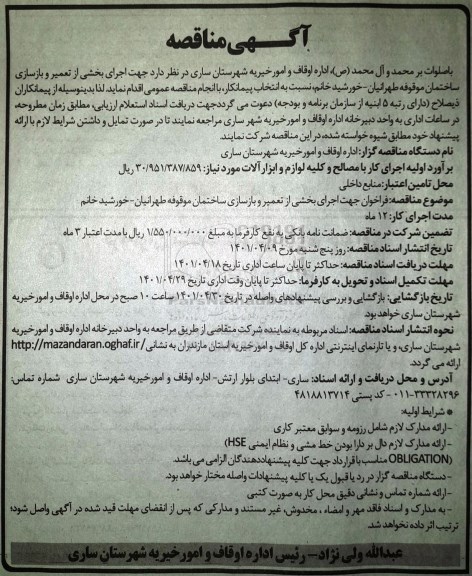 آگهی مناقصه
باصلوات بر محمد و آل محمد (ص)، اداره اوقاف و امور خیریه شهرستان ساری در نظر دارد جهت اجرای بخشی از تعمیر و بازسازی
ساختمان موقوفه طهرانیان-خورشید خانم، نسبت به انتخاب پیمانکار، با انجام مناقصه عمومی اقدام نماید. لذا بدینوسیله از پیمانکاران
ذیصلاح (دارای رتبه ۵ ابنیه از سازمان برنامه و بودجه) دعوت می گردد جهت دریافت اسناد استعلام ارزیابی، مطابق زمان مطروحه،
در ساعات اداری به واحد دبیرخانه اداره اوقاف و امور خیریه شهر ساری مراجعه نمایند تا در صورت تمایل و داشتن شرایط لازم با ارائه
پیشنهاد خود مطابق شیوه خواسته شده، در این مناقصه شرکت نمایند.
نام دستگاه مناقصه گزار: اداره اوقاف و امور خیریه شهرستان ساری
برآورد اولیه اجرای کار با مصالح و کلیه لوازم و ابزار آلات مورد نیاز: ۳۰/۹۵۱/۳۸۷/۸۵۹ ریال
محل تامین اعتبار: منابع داخلی
موضوع مناقصه: فراخوان جهت اجرای بخشی از تعمیر و بازسازی ساختمان موقوفه طهرانیان-خورشید خانم
مدت اجرای کار: ۱۲ ماه
تضمین شرکت در مناقصه: ضمانت نامه بانکی به نفع کارفرما به مبلغ ۱/۵۵۰/۰۰۰/۰۰۰ ریال با مدت اعتبار ۳ ماه
تاریخ انتشار اسناد مناقصه: روز پنج شنبه مورخ ۱۴۰۱/۰۴/۰۹
مهلت دریافت اسناد مناقصه: حداکثر تا پایان ساعت اداری تاریخ ۱۴۰۱/۰۴/۱۸
مهلت تکمیل اسناد و تحویل به کارفرما: حداکثر تا پایان وقت اداری تاریخ ۱۴۰۱/۰۴/۲۹
تاریخ بازگشایی: بازگشایی و بررسی پیشنهادهای واصله در تاریخ ۱۴۰۱/۰۴/۳۰ ساعت ۱۰ صبح در محل اداره اوقاف و امور خیریه
شهرستان ساری خواهد بود
نحوه انتشار اسناد مناقصه: اسناد مربوطه به نماینده شرکت متقاضی از طریق مراجعه به واحد دبیرخانه اداره اوقاف و امور خیریه
شهرستان ساری، و یا تارنمای اینترنتی اداره کل اوقاف و امور خیریه استان مازندران به نشانی http://mazandaran.oghaf.ir/
ارائه می گردد.
آدرس و محل دریافت و ارائه اسناد: ساری- ابتدای بلوار ارتش- اداره اوقاف و امور خیریه شهرستان ساری شماره تماس:
۰۱۱-۳۳۳۲۸۲۹۶ - کد پستی ۴۸۱۸۸۱۳۷۱۴
* شرایط اولیه:
-ارائه مدارک لازم شامل رزومه و سوابق معتبر کاری
-ارائه مدارک لازم دال بر دارا بودن خط مشی و نظام ایمنی (HSE
OBLIGATION) مناسب با قرارداد جهت کلیه پیشنهاددهندگان الزامی می باشد.
-دستگاه مناقصه گزار در رد یا قبول یک یا کلیه پیشنهادات واصله مختار خواهد بود.
-ارائه شماره تماس و نشانی دقیق محل کار به صورت کتبی
- به مدارک و اسناد فاقد مهر و امضاء، مخدوش، غیر مستند و مدارکی که پس از انقضای مهلت قید شده در آگهی واصل شود؛
ترتیب اثر داده نخواهد شد.
عبدالله ولی نژاد- رئیس اداره اوقاف و امور خیریه شهرستان ساری